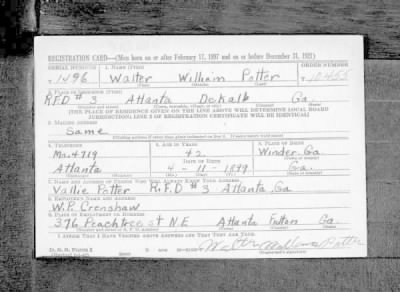 REGISTRATION CARD—(Men born on or after February 17, 1897 and on or before December 31, 1921)
SERIAL NUMBER 1. NAME (Print) ORDER NUMBER
1496 Walter William Potter 10455
(First) (Middle) (Last)
2. PLACE OF RESIDENCE (Print)
R.F.D # 3 Atlanta Dekalb Ga.
(Number and street) (Town, township, village, or city) (County) (State)
[THE PLACE OF RESIDENCE GIVEN ON THE LINE ABOVE WILL DETERMINE LOCAL BOARD
JURISDICTION; LINE 2 OF REGISTRATION CERTIFICATE WILL BE IDENTICAL]
3. MAILING ADDRESS
Same
[Mailing address if other than place indicated on line 2. If same insert word same]
4. TELEPHONE 5. AGE IN YEARS 6. PLACE OF BIRTH
Ma. 4719 42 Winder
DATE OF BIRTH (Town or county)
Atlanta 4 - 11 - 1899 Ga.
(Exchange) (Number) (Mo.) (Day) (Yr.) (State or country)
7. NAME AND ADDRESS OF PERSON WHO WILL ALWAYS KNOW YOUR ADDRESS
Vallie Potter R.F.D # 3 Atlanta Ga
8. EMPLOYER'S NAME AND ADDRESS
W.P. Crenshaw
9. PLACE OF EMPLOYMENT OR BUSINESS
376 Peachtree st N.E Atlanta Fulton Ga.
(Number and street or R. F. D. number) (Town) (County) (State)
I AFFIRM THAT I HAVE VERIFIED ABOVE ANSWERS AND THAT THEY ARE TRUE.
D. S. S. Form 1
Walter William Potter
(Registrant's signature)